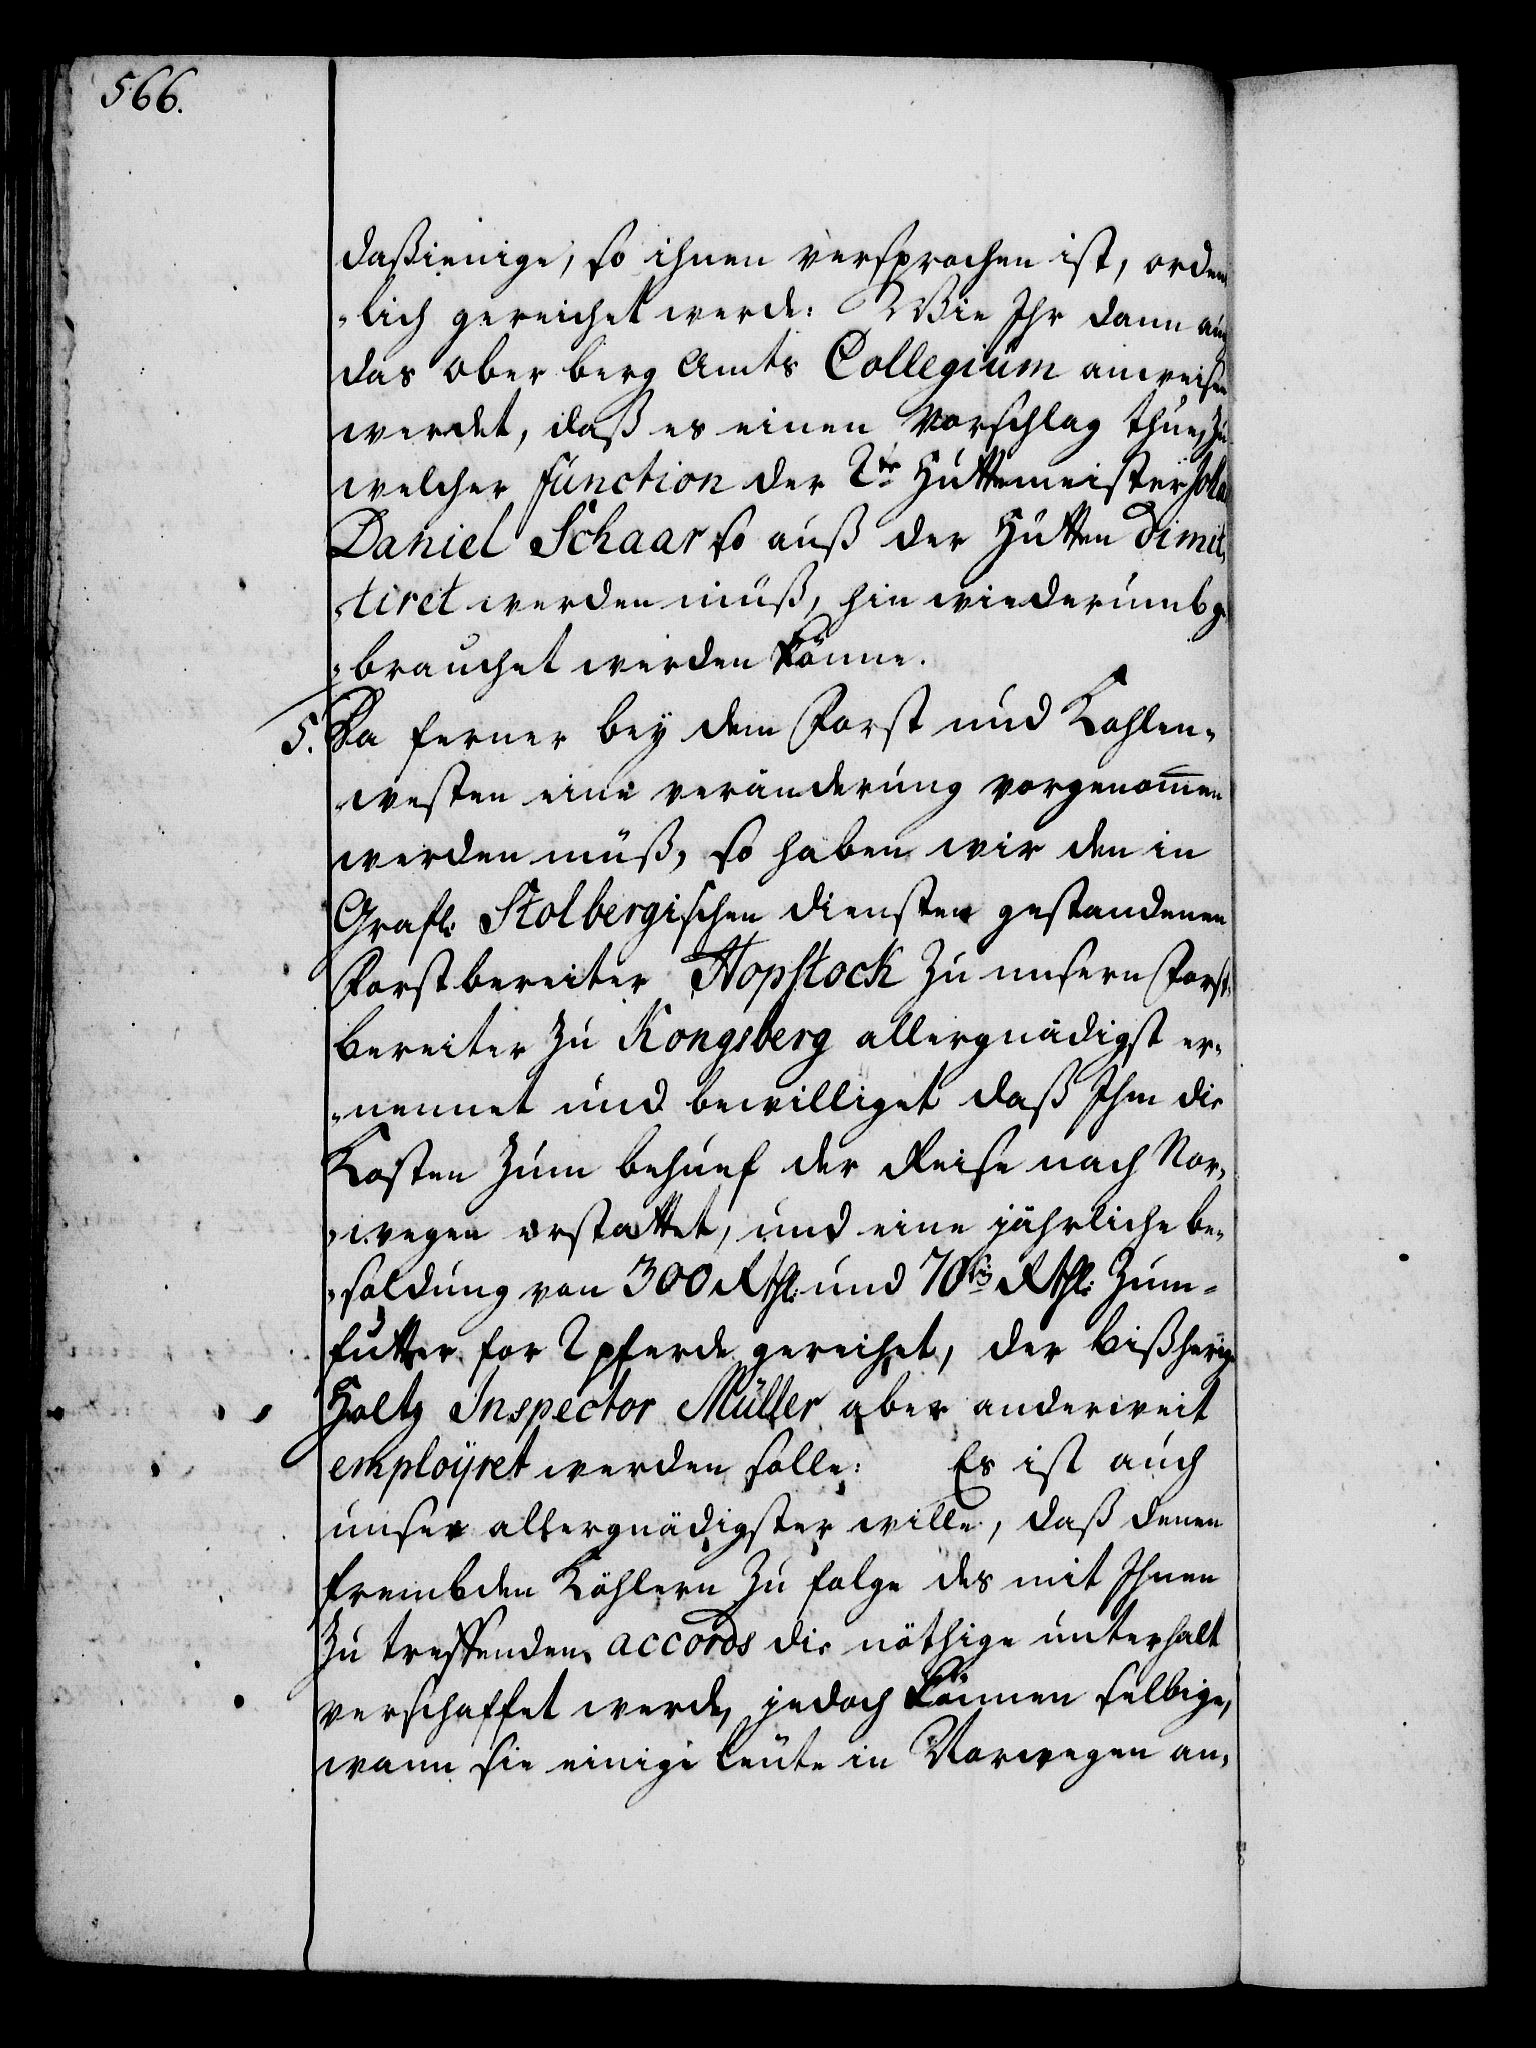 566.
daßienige, so ihnen versprochen ist, orden
„lich gereichet werde: Wie Ihr dann auch
das Ober berg Amts Collegium anweisen
werdet, daß es einen Vorschlag thue, zu
welcher function der 2te Hüttemeister Joha
Daniel Schaar so auß der Hütten dimit„
„tiret werden müß, hin wiederumb ge
„brauchet werden könne.
5. Da ferner bey dem Forst und Kohlen„
westen eine veränderung vorgenom̄en
werden müß, so haben wir den in
Grafl: Stolbergischen diensten gestandenen
Forstbereiter Hopstock zu unsern Forst„
bereiter zu Kongsberg allergnädigst er„
„nennet und bewilliget daß Ihm die
Kosten zum behuef der Reise nach Nor„
„wegen erstattet, und eine jährliche be„
„soldung von 300 Rthl: und 70 Rthl: zum„
futter for 2 pferde gereichet, der bißherige
Holtz Inspector Müller aber anderweit
employret werden solle: Es ist auch
unser allergnädigster wille, daß denen
frembden Köhlern zu folge des mit Ihnen
zu treffenden accords die nöthige unterhalt
verschaffet werde, jedoch können selbige,
wann sie einige leute in Norwegen an„